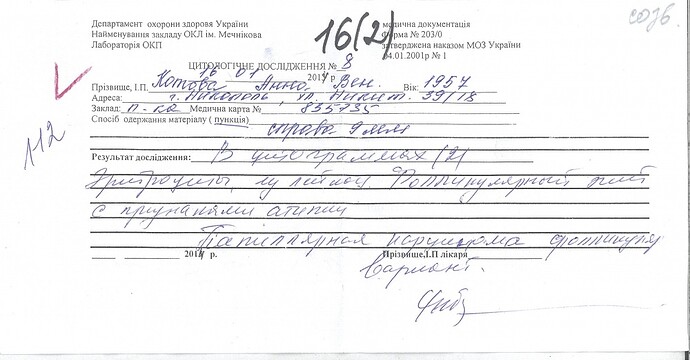 Департамент охорони здоровя України
Найменування закладу ОКЛ ім. Мечнікова
Лабораторія ОКП
16(2)
медична документація
Форма № 203/0
затверджена наказом МОЗ України
04.01.2001р № 1
ЦИТОЛОГІЧНЕ ДОСЛІДЖЕННЯ № 8
16 01 2014 р.
Прізвище, І.П. Котова Анна Вен. Вік: 1957
Адреса: г. Никополь, ул. 39/18
Заклад: п-ка Медична карта № 835735
Спосіб одержання матеріалу (пункція)
справа 9 мм
112
Результат дослідження: В цитограммах (2)
эритроциты, Фолликулярный
с признаками атипии
Папиллярная карцинома фолликуляр
2014 р. Прізвище,І.П лікаря
вариант.